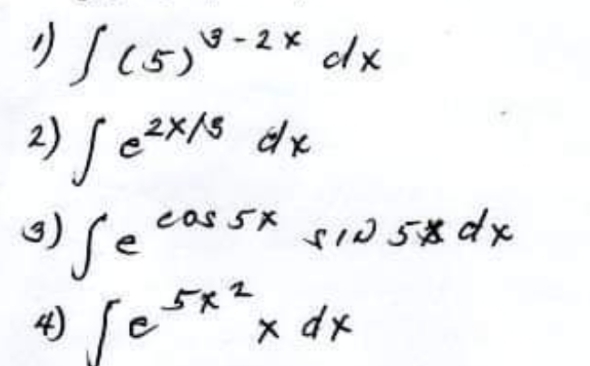 1) ∫ (5)^{3-2x} dx
2) ∫ e^{2x/3} dx
3) ∫ e^{cos 5x} sin 5x dx
4) ∫ e^{5x^2} x dx